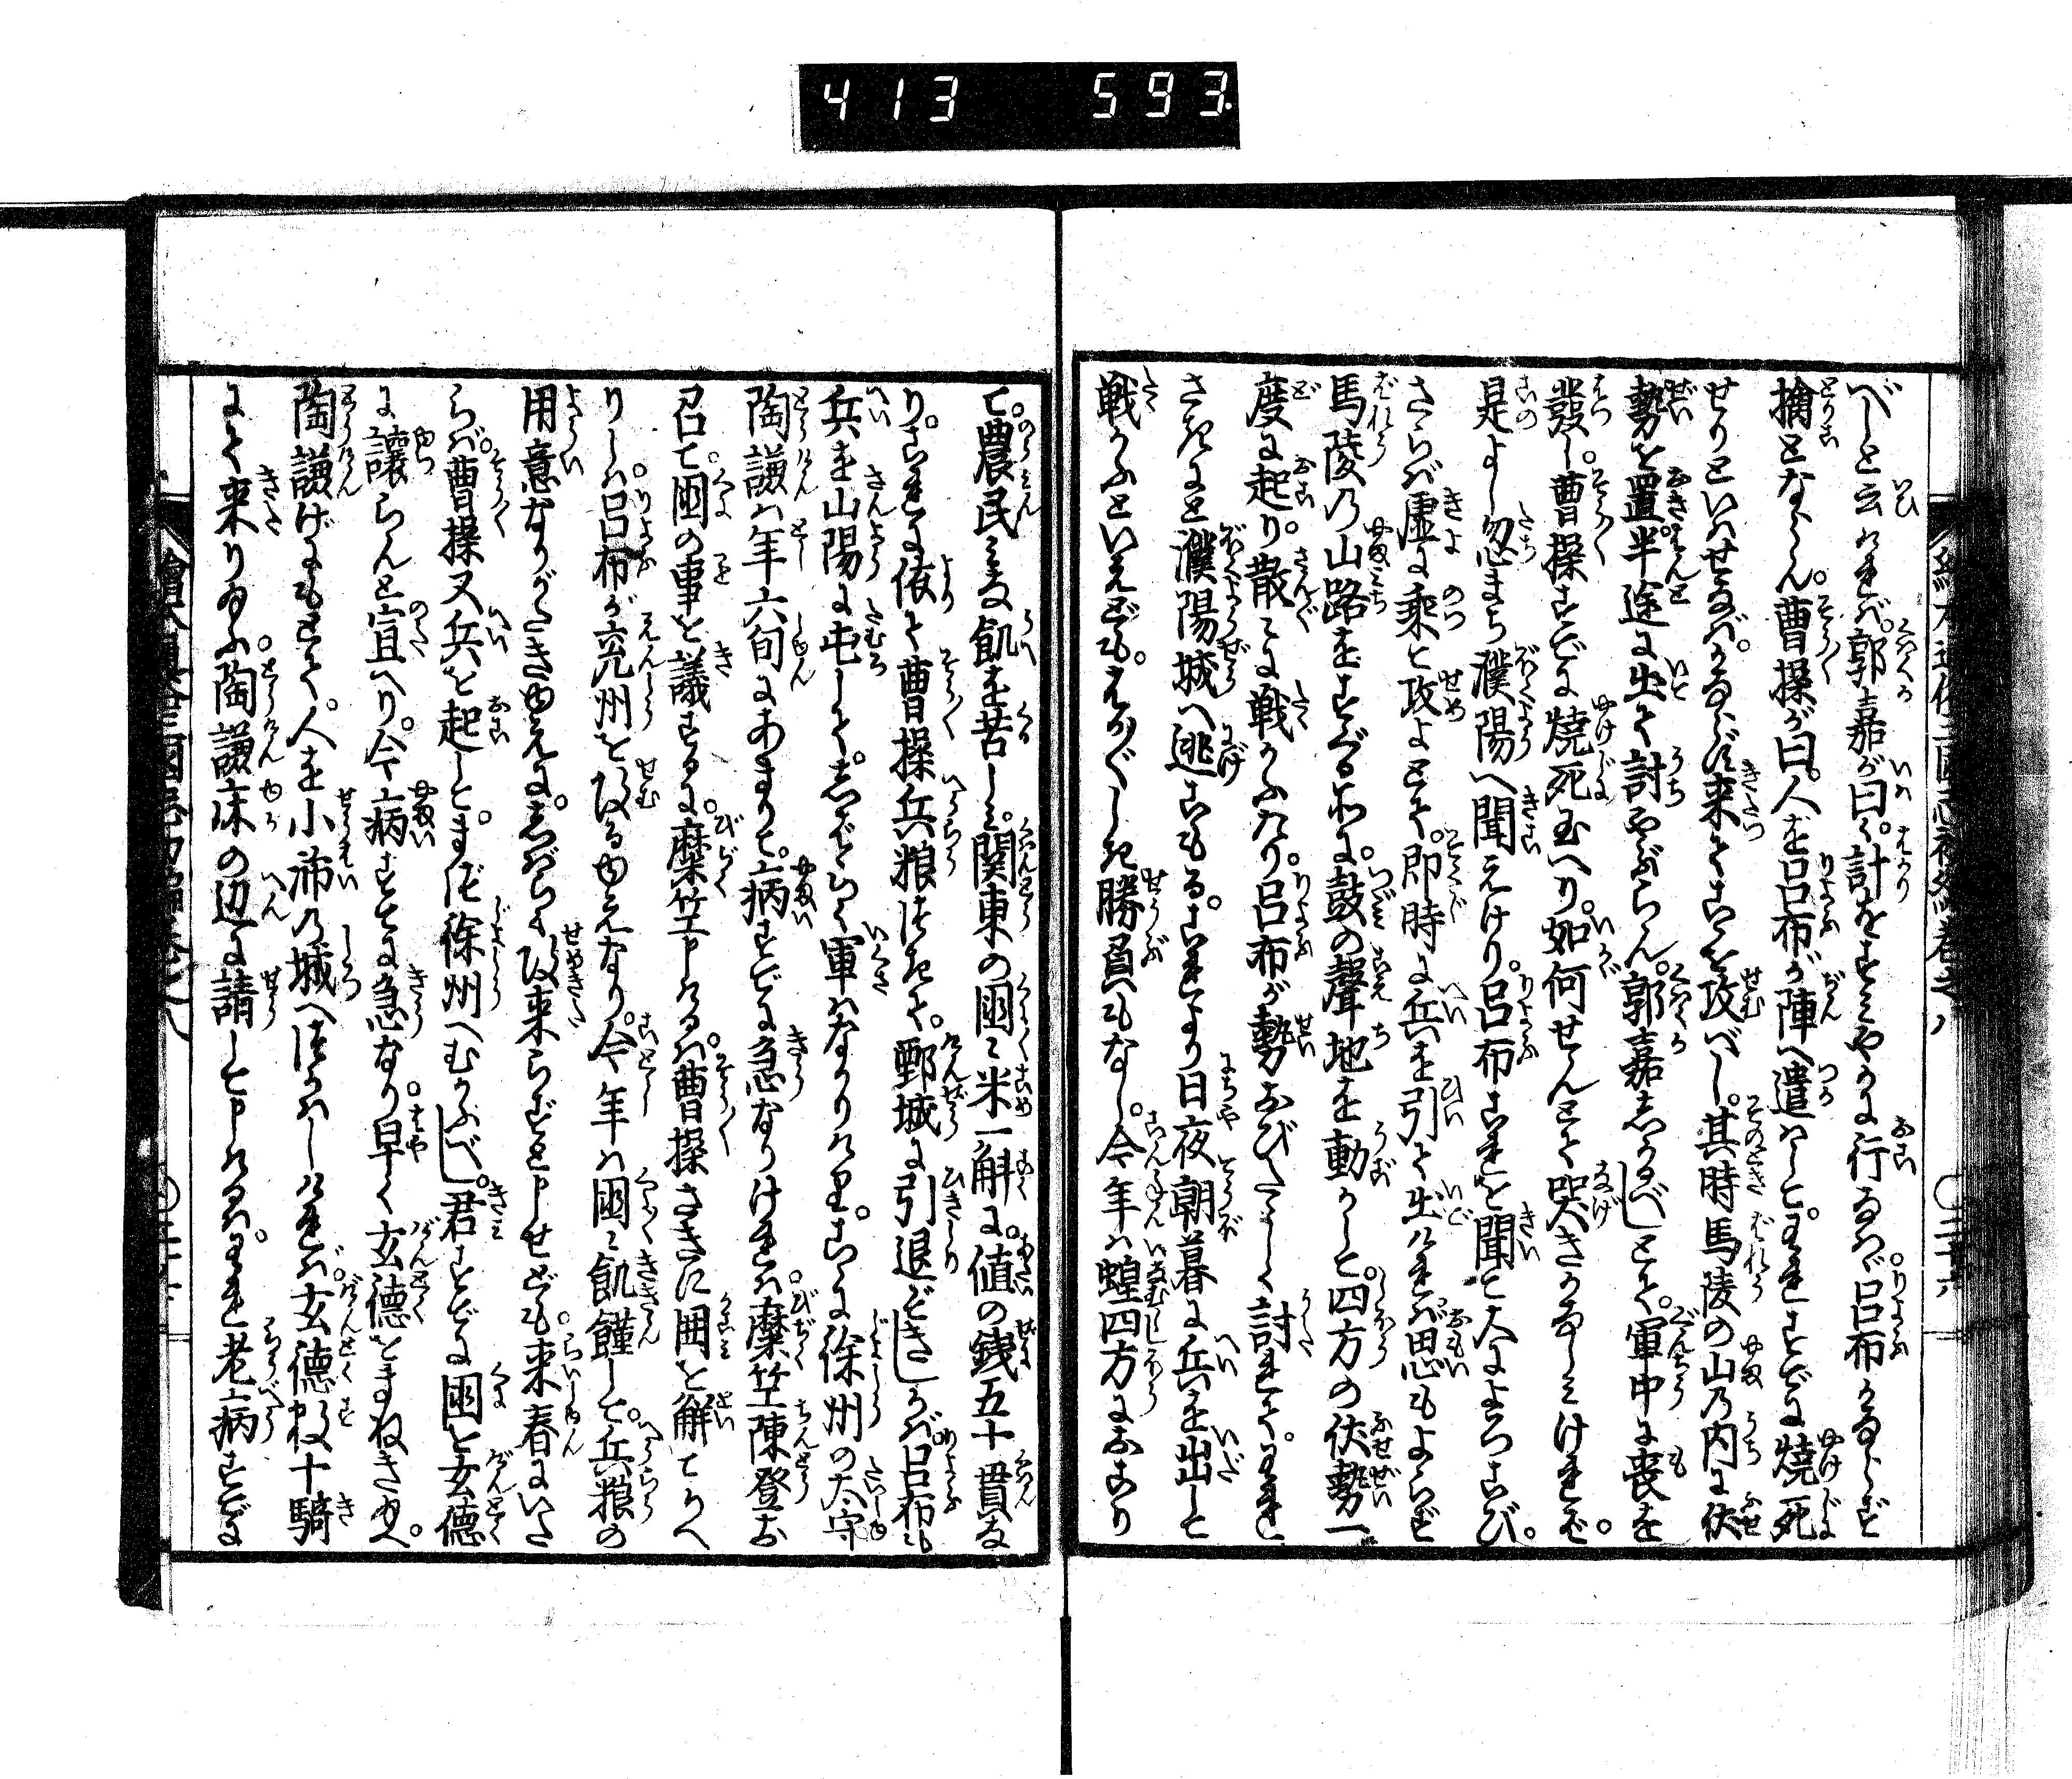 413 593
べしと云ければ。郭嘉が曰く。計をすみやかに行なはゞ。呂布かならず
擒とならん。曹操が曰。人を呂布が陣へ遣はして。われすでに焼死
せりといはせなば。かならず来てこれを攻べし。其時馬陵の山の内に伏
勢を置。半途に出て討やぶらん。郭嘉しかるべしとて。軍中に喪を
發し。曹操すでに焼死玉へり。如何せんとて哭きかなしみければ。
是より忽まち濮陽へ聞えけり。呂布これを聞て大によろこび。
さらば虚に乗て攻よとて。即時に兵を引て出ければ思もよらず
馬陵の山路をすぐる所に。鼓の聲地を動かして。四方の伏勢一
度に起り。散〻に戦かふたり。呂布が勢おびたゝしく討れて。われ
さきにと濮陽城へ逃こもる。これより日夜朝暮に兵を出して
戦かふといえども。はか〴〵しき勝負もなし。今年は蝗四方におこり
て。農民みな飢を苦しみ。関東の国〻米一斛に。値の銭五十貫な
り。これに依て曹操兵粮つきて。鄄城に引退ぞきしかば呂布も
兵を山陽に屯して。しばらく軍はなかりけり。こゝに徐州の太守
陶謙は年六旬にあまりて。病すでに急なりければ。糜竺陳登お
召て。国の事を議するに。糜竺申しけるは。曹操さきに囲を解てかへ
りしは。呂布が兗州を攻る由えなり。今年は国〻飢饉して。兵粮の
用意なりがたきゆえに。しばらく攻来らずと申せども。来春にいた
らば。曹操又兵を起して。まづ徐州へむかふべし。君すでに国を玄徳
に讓らんと宜へり。今病すでに急なり。早く玄徳をまねき玉へ。
陶謙げにもとて。人を小沛の城へつかはしければ。玄徳数十騎
にて来りゐふ。陶謙床の辺に請して申しけるは。われ老病すでに